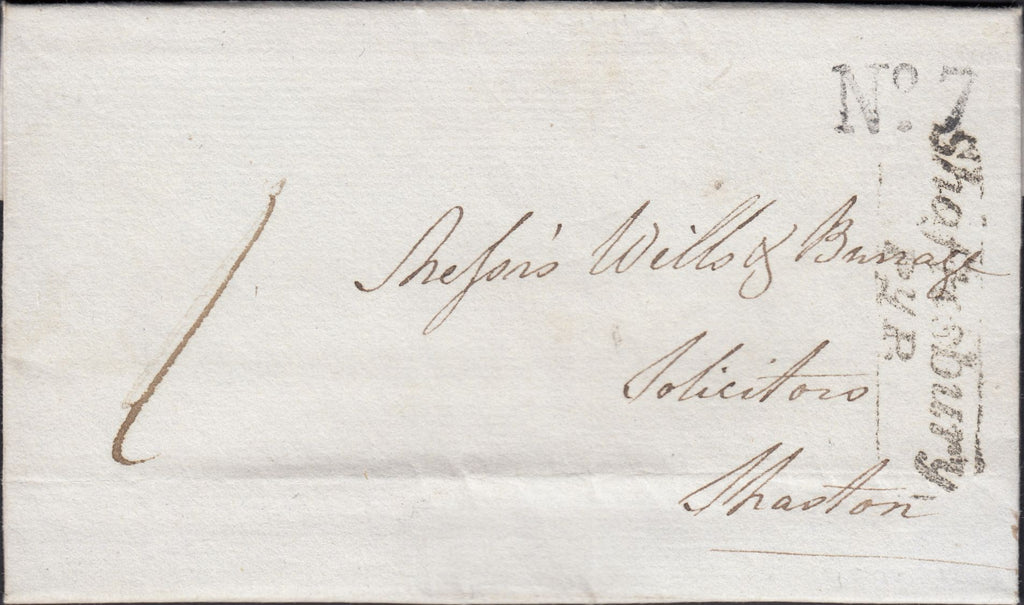 No. 7
Shaftesbury
Py P
1
Messrs Wills &
Solicitors
Shaston